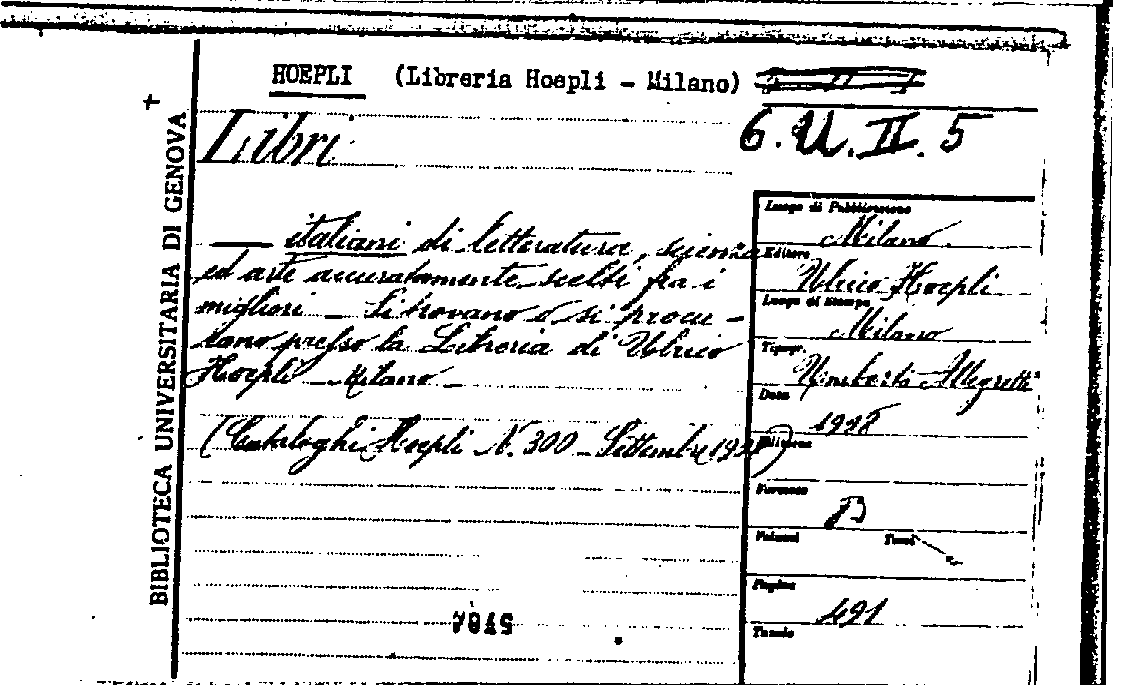 HOEPLI (Libreria Hoepli - Milano)
6. U. II. 5
Libri
BIBLIOTECA UNIVERSITARIA DI GENOVA
— italiani di letteratura, scienza
ed arte accuratamente scelti fra i
migliori — Si trovano o si procu-
rano presso la Libreria di Ulrico
Hoepli — Milano —
(Cataloghi Hoepli N. 300 - Settembre
Luogo di Pubblicazione
Milano
Editore
Ulrico Hoepli
Luogo di Stampa
Milano
Tipogr.
Umberto Allegretti
Data
Edizione
Formato
Volumi Tomi
Pagine
491
Tavole